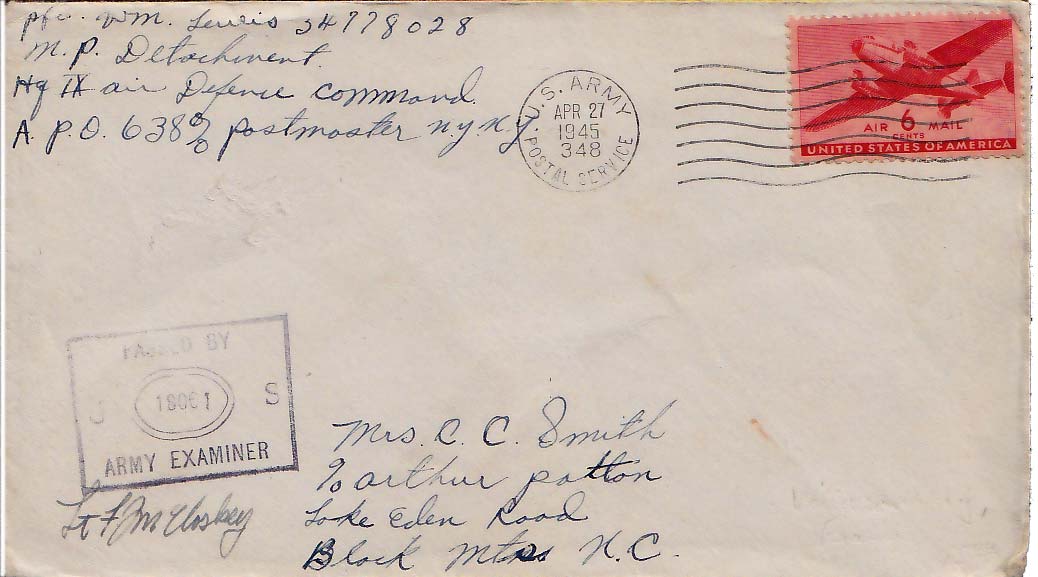 pfc. Wm. Lewis 34778028
M.P. Detachment.
Hq IX air Defense command.
A.P.O. 638 % postmaster n.y. N.y.
U.S. ARMY
APR 27
1945
348
POSTAL SERVICE
AIR 6 MAIL
CENTS
UNITED STATES OF AMERICA
PASSED BY
U 18061 S
ARMY EXAMINER
Lt F J McCloskey
Mrs. C. C. Smith
% arthur patton
Lake Eden Road
Black Mtns N.C.